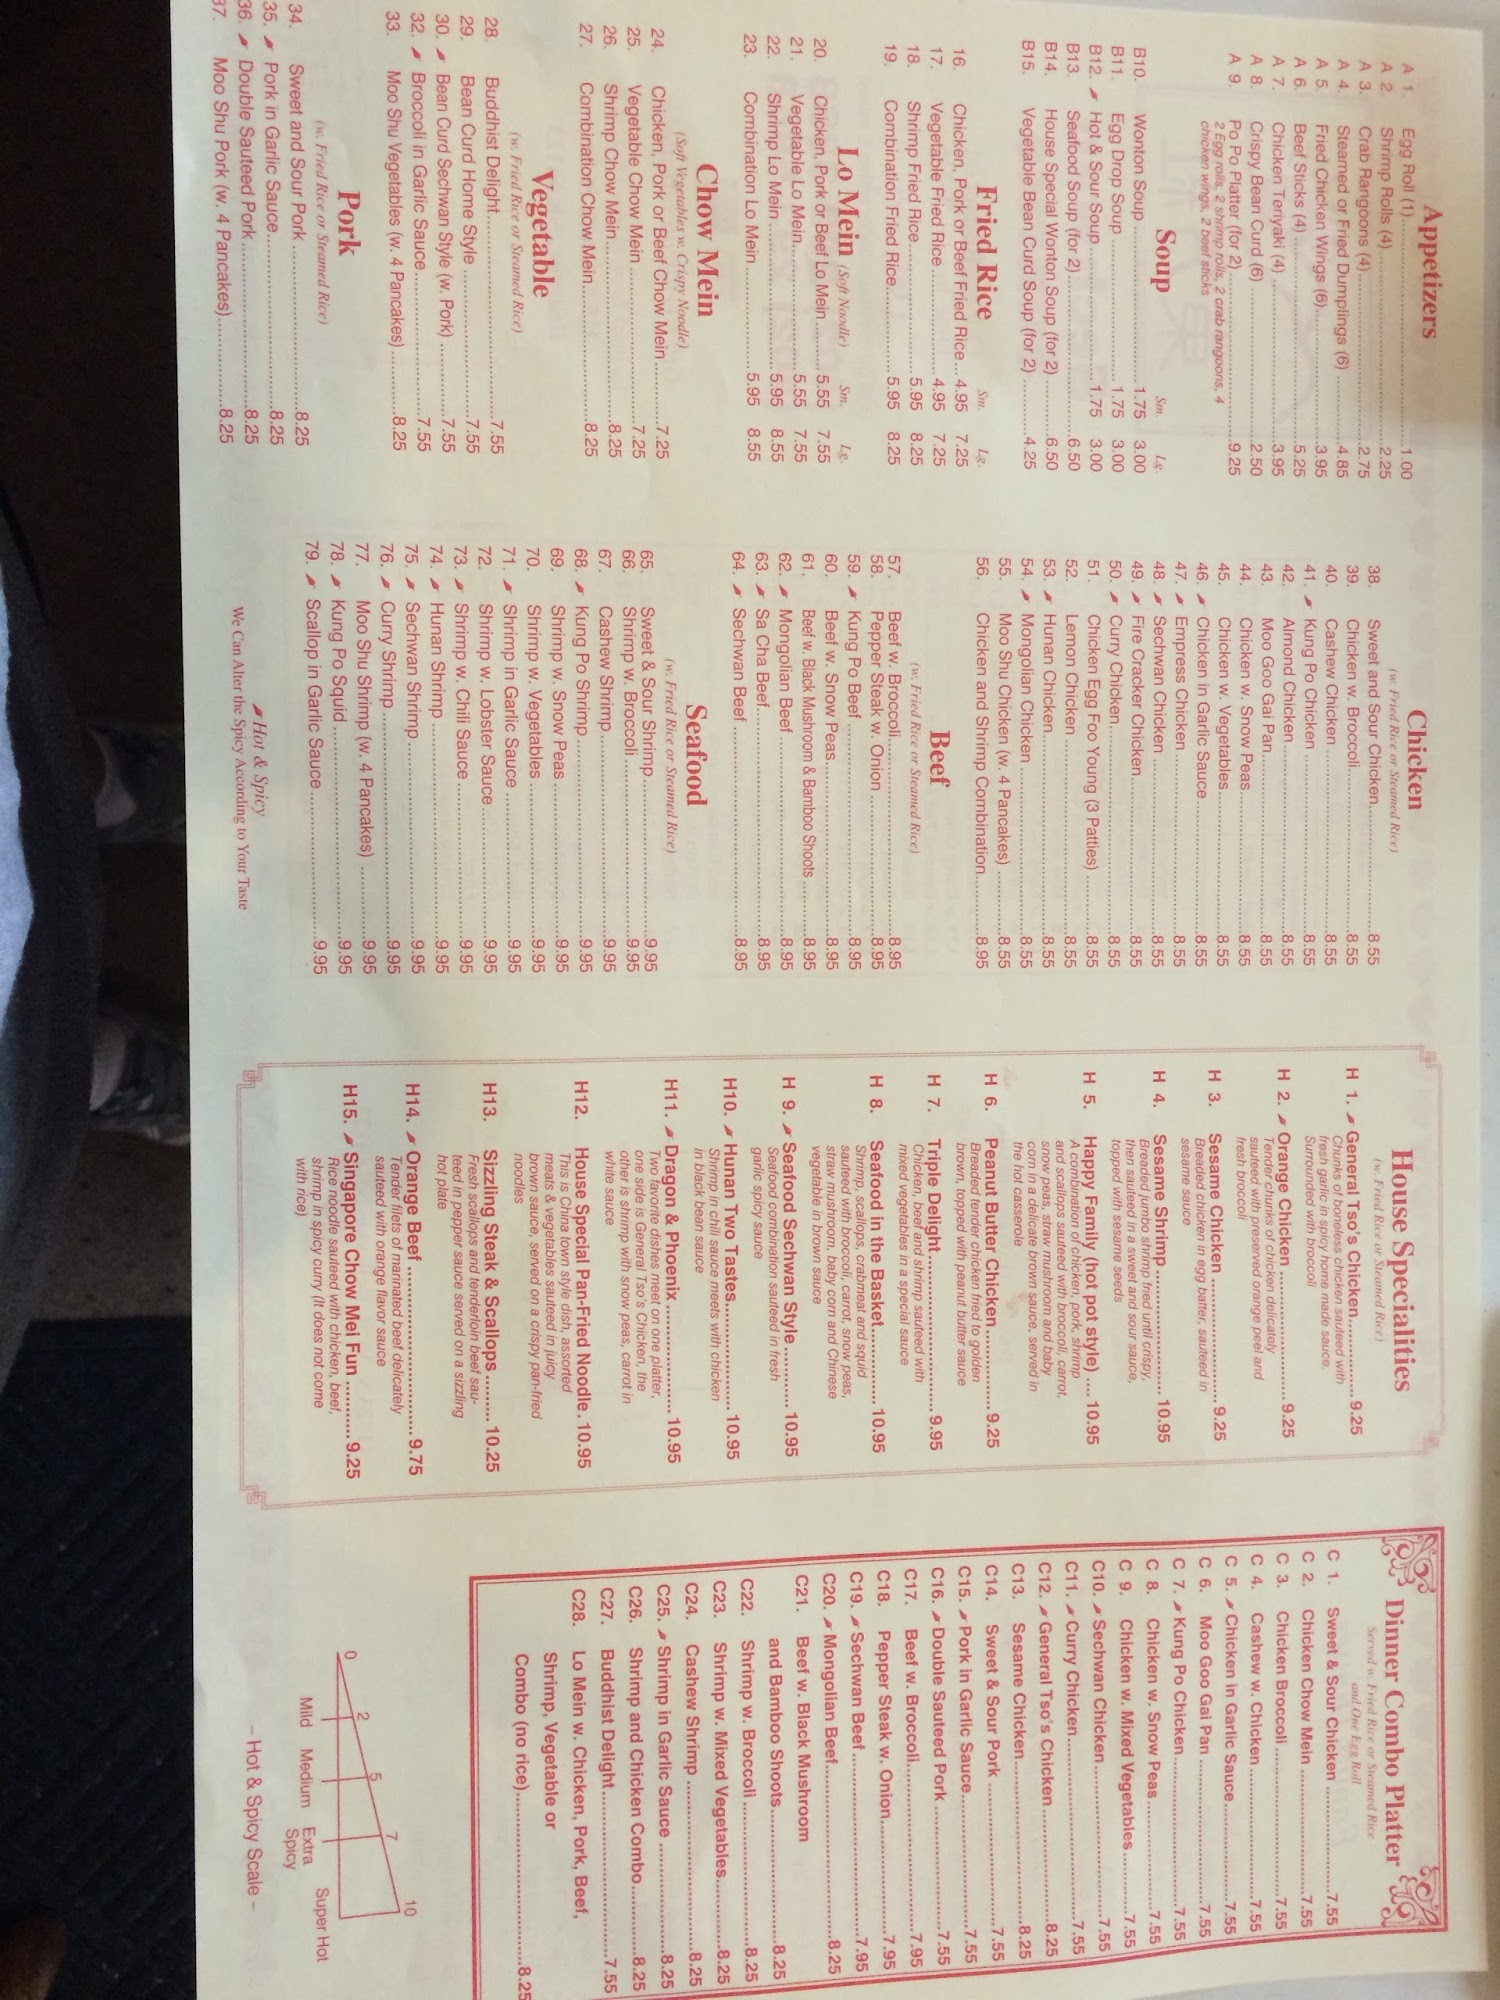 Appetizers
A 1. Egg Roll (1) 1.00
A 2. Shrimp Rolls (4) 2.25
A 3. Crab Rangoons (4) 2.75
A 4. Steamed or Fried Dumplings (6) 4.85
A 5. Fried Chicken Wings (6) 3.95
A 6. Beef Sticks (4) 5.25
A 7. Chicken Teriyaki (4) 3.95
A 8. Crispy Bean Curd (6) 2.50
A 9. Po Po Platter (for 2) 9.25
2 Egg rolls, 2 shrimp rolls, 2 crab rangoons, 4
chicken wings, 2 beef sticks
Soup Sm. Lg.
B10. Wonton Soup 1.75 3.00
B11. Egg Drop Soup 1.75 3.00
B12. Hot & Sour Soup 1.75 3.00
B13. Seafood Soup (for 2) 6.50
B14. House Special Wonton Soup (for 2) 6.50
B15. Vegetable Bean Curd Soup (for 2) 4.25
Fried Rice Sm. Lg.
16. Chicken, Pork or Beef Fried Rice 4.95 7.25
17. Vegetable Fried Rice 4.95 7.25
18. Shrimp Fried Rice 5.95 8.25
19. Combination Fried Rice 5.95 8.25
Lo Mein (Soft Noodle) Sm. Lg.
20. Chicken, Pork or Beef Lo Mein 5.55 7.55
21. Vegetable Lo Mein 5.55 7.55
22. Shrimp Lo Mein 5.95 8.55
23. Combination Lo Mein 5.95 8.55
Chow Mein
(Soft Vegetables w. Crispy Noodle)
24. Chicken, Pork or Beef Chow Mein 7.25
25. Vegetable Chow Mein 7.25
26. Shrimp Chow Mein 8.25
27. Combination Chow Mein 8.25
Vegetable
(w. Fried Rice or Steamed Rice)
28. Buddhist Delight 7.55
29. Bean Curd Home Style 7.55
30. Bean Curd Sechwan Style (w. Pork) 7.55
32. Broccoli in Garlic Sauce 7.55
33. Moo Shu Vegetables (w. 4 Pancakes) 8.25
Pork
(w. Fried Rice or Steamed Rice)
34. Sweet and Sour Pork 8.25
35. Pork in Garlic Sauce 8.25
36. Double Sauteed Pork 8.25
37. Moo Shu Pork (w. 4 Pancakes) 8.25
Chicken
(w. Fried Rice or Steamed Rice)
38. Sweet and Sour Chicken 8.55
39. Chicken w. Broccoli 8.55
40. Cashew Chicken 8.55
41. Kung Po Chicken 8.55
42. Almond Chicken 8.55
43. Moo Goo Gai Pan 8.55
44. Chicken w. Snow Peas 8.55
45. Chicken w. Vegetables 8.55
46. Chicken in Garlic Sauce 8.55
47. Empress Chicken 8.55
48. Sechwan Chicken 8.55
49. Fire Cracker Chicken 8.55
50. Curry Chicken 8.55
51. Chicken Egg Foo Young (3 Patties) 8.55
52. Lemon Chicken 8.55
53. Hunan Chicken 8.55
54. Mongolian Chicken 8.55
55. Moo Shu Chicken (w. 4 Pancakes) 8.55
56. Chicken and Shrimp Combination 8.95
Beef
(w. Fried Rice or Steamed Rice)
57. Beef w. Broccoli 8.95
58. Pepper Steak w. Onion 8.95
59. Kung Po Beef 8.95
60. Beef w. Snow Peas 8.95
61. Beef w. Black Mushroom & Bamboo Shoots 8.95
62. Mongolian Beef 8.95
63. Sa Cha Beef 8.95
64. Sechwan Beef 8.95
Seafood
(w. Fried Rice or Steamed Rice)
65. Sweet & Sour Shrimp 9.95
66. Shrimp w. Broccoli 9.95
67. Cashew Shrimp 9.95
68. Kung Po Shrimp 9.95
69. Shrimp w. Snow Peas 9.95
70. Shrimp w. Vegetables 9.95
71. Shrimp in Garlic Sauce 9.95
72. Shrimp w. Lobster Sauce 9.95
73. Shrimp w. Chili Sauce 9.95
74. Hunan Shrimp 9.95
75. Sechwan Shrimp 9.95
76. Curry Shrimp 9.95
77. Moo Shu Shrimp (w. 4 Pancakes) 9.95
78. Kung Po Squid 9.95
79. Scallop in Garlic Sauce 9.95
Hot & Spicy
We Can Alter the Spicy According to Your Taste
House Specialities
(w. Fried Rice or Steamed Rice)
H 1. General Tso's Chicken 9.25
Chunks of boneless chicken sauteed with
fresh garlic in spicy home made sauce.
Surrounded with broccoli
H 2. Orange Chicken 9.25
Tender chunks of chicken delicately
sauteed with preserved orange peel and
fresh broccoli
H 3. Sesame Chicken 9.25
Breaded chicken in egg batter, sauteed in
sesame sauce
H 4. Sesame Shrimp 10.95
Breaded jumbo shrimp fried until crispy,
then sauteed in a sweet and sour sauce,
topped with sesame seeds
H 5. Happy Family (hot pot style) 10.95
A combination of chicken, pork, shrimp
and scallops sauteed with broccoli, carrot,
snow peas, straw mushroom and baby
corn in a delicate brown sauce, served in
the hot casserole
H 6. Peanut Butter Chicken 9.25
Breaded tender chicken fried to golden
brown, topped with peanut butter sauce
H 7. Triple Delight 9.95
Chicken, beef and shrimp sauteed with
mixed vegetables in a special sauce
H 8. Seafood in the Basket 10.95
Shrimp, scallops, crabmeat and squid
sauteed with broccoli, carrot, snow peas,
straw mushroom, baby corn and Chinese
vegetable in brown sauce
H 9. Seafood Sechwan Style 10.95
Seafood combination sauteed in fresh
garlic spicy sauce
H10. Hunan Two Tastes 10.95
Shrimp in chili sauce meets with chicken
in black bean sauce
H11. Dragon & Phoenix 10.95
Two favorite dishes meet on one platter,
one side is General Tso's Chicken, the
other is shrimp with snow peas, carrot in
white sauce
H12. House Special Pan-Fried Noodle 10.95
This is China town style dish, assorted
meats & vegetables sauteed in juicy
brown sauce, served on a crispy pan-fried
noodles
H13. Sizzling Steak & Scallops 10.25
Fresh scallops and tenderloin beef sau-
teed in pepper sauce served on a sizzling
hot plate
H14. Orange Beef 9.75
Tender filets of marinated beef delicately
sauteed with orange flavor sauce
H15. Singapore Chow Mei Fun 9.25
Rice noodle sauteed with chicken, beef,
shrimp in spicy curry (It does not come
with rice)
Dinner Combo Platter
Served w. Fried Rice or Steamed Rice
and One Egg Roll
C 1. Sweet & Sour Chicken 7.55
C 2. Chicken Chow Mein 7.55
C 3. Chicken Broccoli 7.55
C 4. Cashew w. Chicken 7.55
C 5. Chicken in Garlic Sauce 7.55
C 6. Moo Goo Gai Pan 7.55
C 7. Kung Po Chicken 7.55
C 8. Chicken w. Snow Peas 7.55
C 9. Chicken w. Mixed Vegetables 7.55
C10. Sechwan Chicken 7.55
C11. Curry Chicken 7.55
C12. General Tso's Chicken 8.25
C13. Sesame Chicken 8.25
C14. Sweet & Sour Pork 7.55
C15. Pork in Garlic Sauce 7.55
C16. Double Sauteed Pork 7.55
C17. Beef w. Broccoli 7.95
C18. Pepper Steak w. Onion 7.95
C19. Sechwan Beef 7.95
C20. Mongolian Beef 8.25
C21. Beef w. Black Mushroom
and Bamboo Shoots 8.25
C22. Shrimp w. Broccoli 8.25
C23. Shrimp w. Mixed Vegetables 8.25
C24. Cashew Shrimp 8.25
C25. Shrimp in Garlic Sauce 8.25
C26. Shrimp and Chicken Combo 8.25
C27. Buddhist Delight 7.55
C28. Lo Mein w. Chicken, Pork, Beef,
Shrimp, Vegetable or
Combo (no rice) 8.25
0 2 5 7 10
Mild Medium Extra Spicy Super Hot
– Hot & Spicy Scale –